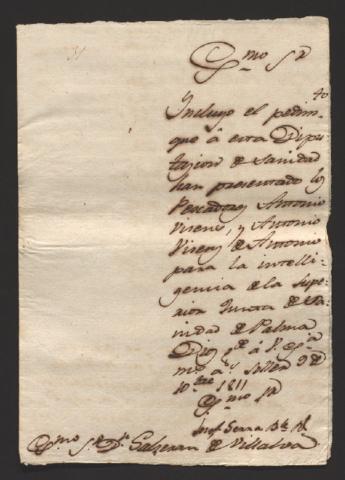 Exmo Sr
Incluyo el pedimto
que á esta Dipu-
tacion de Sanidad
han presentado los
Pescadores Antonio
Vicens, y Antonio
de Antonio
para la intelli-
gencia de la Supe-
rior Junta de Sa-
nidad de Palma
Dios gde á V. Exa
ms as Soller 9 de
10bre 1811
Exmo Sr
Serra
Exmo Sr Dn de Villalva